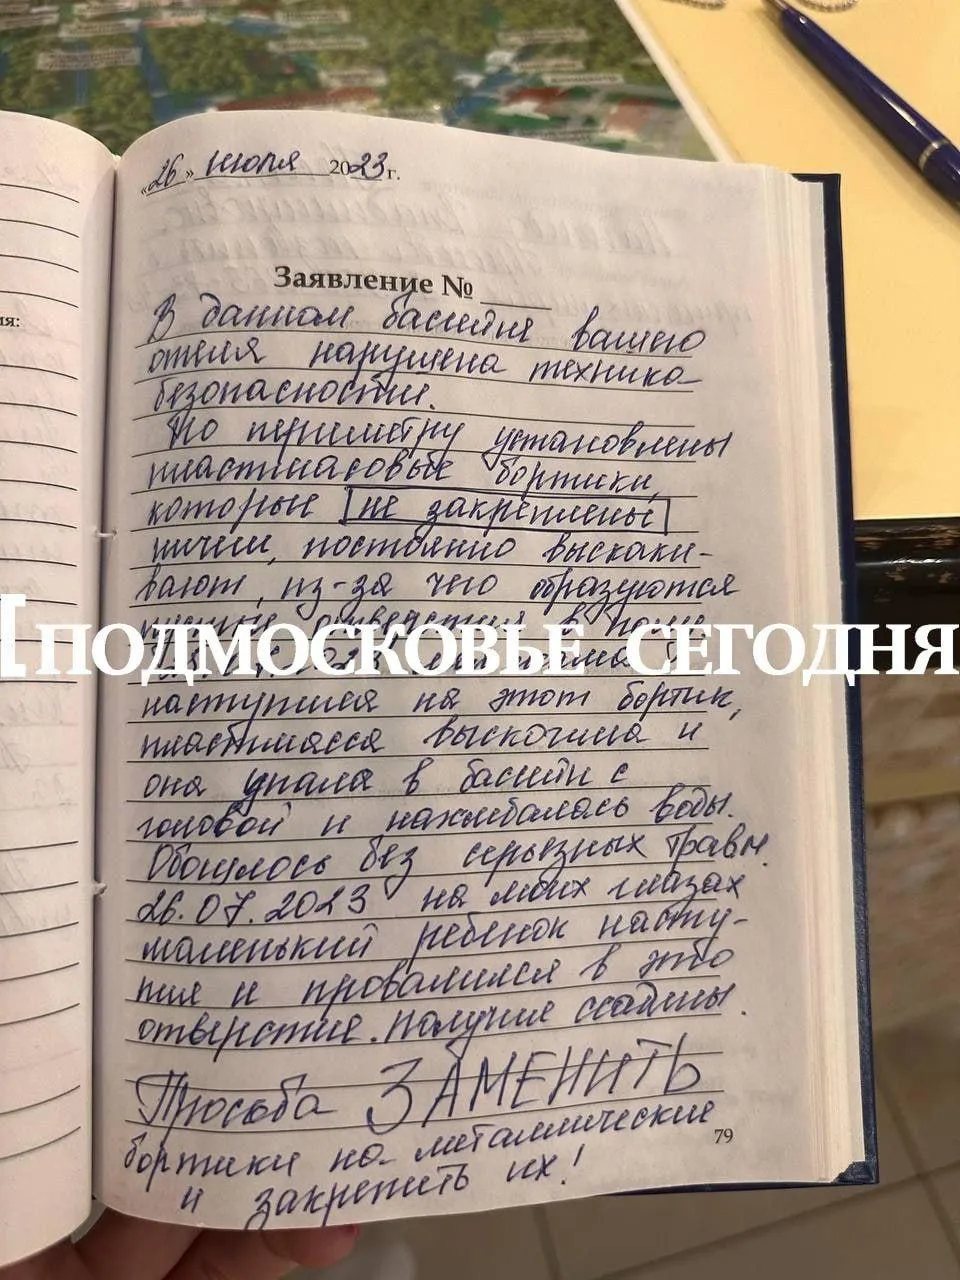 «26» июля 2023 г.
Заявление № ____
В данном басейне вашего
отеля нарушена техника
безопасности.
По периметру установлены
пластмасовые бортики,
которые не закреплены
ничем, постоянно выскаки-
вают, из-за чего образуются
отверстия в полу.
ПОДМОСКОВЬЕ СЕГОДНЯ
наступила на этот бортик,
пластмасса выскочила и
она упала в басейн с
головой и нахлебалась воды.
Обошлось без серьезных травм.
26.07.2023 на моих глазах
маленький ребенок насту-
пил и провалился в это
отверстие. Получил ссадины.
Просьба ЗАМЕНИТЬ
бортики на металлические
и закрепить их!
79
ия: